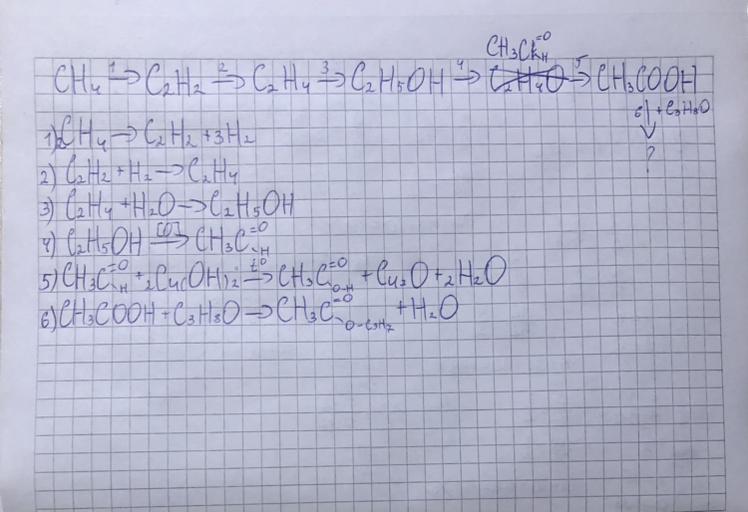 CH₃C=O–H
CH₄ →¹ C₂H₂ →² C₂H₄ →³ C₂H₅OH →⁴ C₂H₄O →⁵ CH₃COOH
6↓ +C₃H₈O
?
1) 2CH₄ → C₂H₂ + 3H₂
2) C₂H₂ + H₂ → C₂H₄
3) C₂H₄ + H₂O → C₂H₅OH
4) C₂H₅OH →[O] CH₃C=O–H
5) CH₃C=O–H + 2Cu(OH)₂ →t° CH₃C=O–O-H + Cu₂O + 2H₂O
6) CH₃COOH + C₃H₈O → CH₃C=O–O-C₃H₇ + H₂O